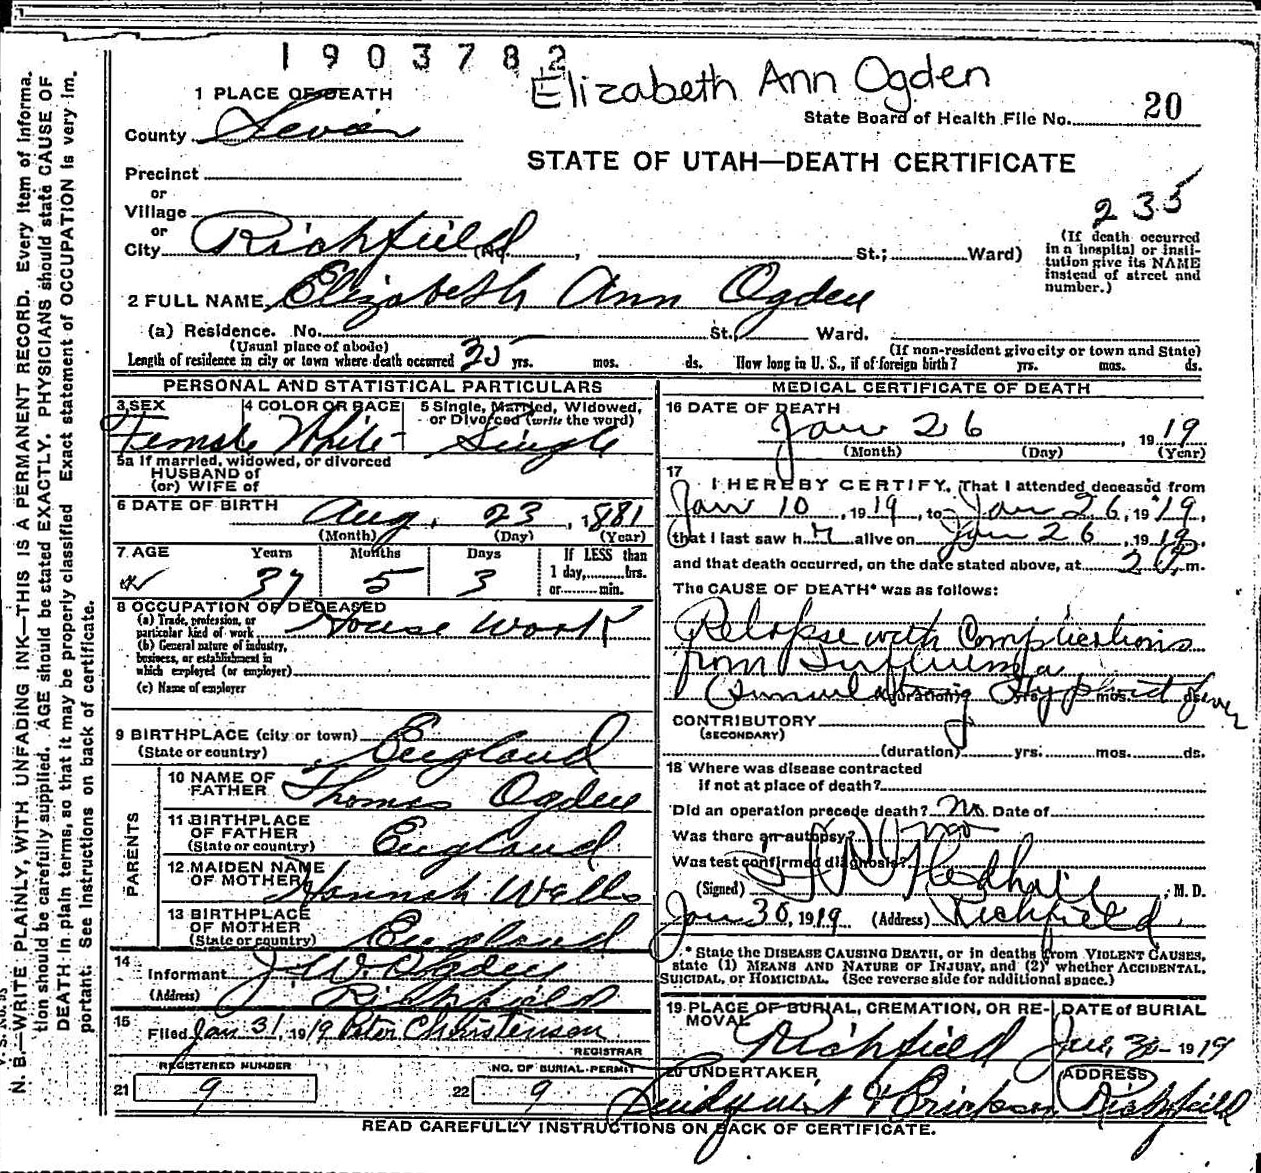 1903782
Elizabeth Ann Ogden
1 PLACE OF DEATH
State Board of Health File No. 20
County Sevier
STATE OF UTAH—DEATH CERTIFICATE
Precinct
or
Village
or
City Richfield (No. , St.; Ward)
235
(If death occurred
in a hospital or insti-
tution give its NAME
instead of street and
number.)
2 FULL NAME Elizabeth Ann Ogden
(a) Residence. No. St., Ward.
(Usual place of abode)
(If non-resident give city or town and State)
Length of residence in city or town where death occurred 35 yrs. mos. ds. How long in U. S., if of foreign birth? yrs. mos. ds.
PERSONAL AND STATISTICAL PARTICULARS
3 SEX
4 COLOR OR RACE
5 Single, Married, Widowed,
or Divorced (write the word)
Female White Single
5a If married, widowed, or divorced
HUSBAND of
(or) WIFE of
6 DATE OF BIRTH Aug. 23, 1881
(Month) (Day) (Year)
7 AGE Years Months Days If LESS than
1 day, hrs.
or min.
37 5 3
8 OCCUPATION OF DECEASED
(a) Trade, profession, or
particular kind of work House Work
(b) General nature of industry,
business, or establishment in
which employed (or employer)
(c) Name of employer
9 BIRTHPLACE (city or town)
(State or country) England
PARENTS
10 NAME OF
FATHER Thomas Ogden
11 BIRTHPLACE
OF FATHER
(State or country) England
12 MAIDEN NAME
OF MOTHER Hannah Wells
13 BIRTHPLACE
OF MOTHER
(State or country) England
14
Informant J. W. Ogden
(Address) Richfield
15
Filed Jan 31 1919 Peter Christenson
REGISTRAR
REGISTERED NUMBER
21 9
NO. OF BURIAL PERMIT
22 9
MEDICAL CERTIFICATE OF DEATH
16 DATE OF DEATH
Jan 26, 1919
(Month) (Day) (Year)
17
I HEREBY CERTIFY, That I attended deceased from
Jan 10, 1919, to Jan 26, 1919,
that I last saw h r alive on Jan 26, 1919
and that death occurred, on the date stated above, at 2 P. m.
The CAUSE OF DEATH* was as follows:
Relapse with Complications
from Influenza
(Simulating Typhoid fever
(duration) yrs. mos. ds.
CONTRIBUTORY
(SECONDARY)
(duration) yrs. mos. ds.
18 Where was disease contracted
if not at place of death?
Did an operation precede death? No. Date of
Was there an autopsy? no
Was test confirmed diagnosis?
(Signed) , M. D.
Jan 30, 1919 (Address) Richfield
* State the DISEASE CAUSING DEATH, or in deaths from VIOLENT CAUSES,
state (1) MEANS AND NATURE OF INJURY, and (2) whether ACCIDENTAL,
SUICIDAL, or HOMICIDAL. (See reverse side for additional space.)
19 PLACE OF BURIAL, CREMATION, OR RE-
MOVAL
Richfield
DATE of BURIAL
Jan, 30- 1919
20 UNDERTAKER
Lindquist & Erickson
ADDRESS
Richfield
READ CAREFULLY INSTRUCTIONS ON BACK OF CERTIFICATE.
N. B.—WRITE PLAINLY, WITH UNFADING INK—THIS IS A PERMANENT RECORD. Every item of informa-
tion should be carefully supplied. AGE should be stated EXACTLY. PHYSICIANS should state CAUSE OF
DEATH in plain terms, so that it may be properly classified. Exact statement of OCCUPATION is very im-
portant. See instructions on back of certificate.